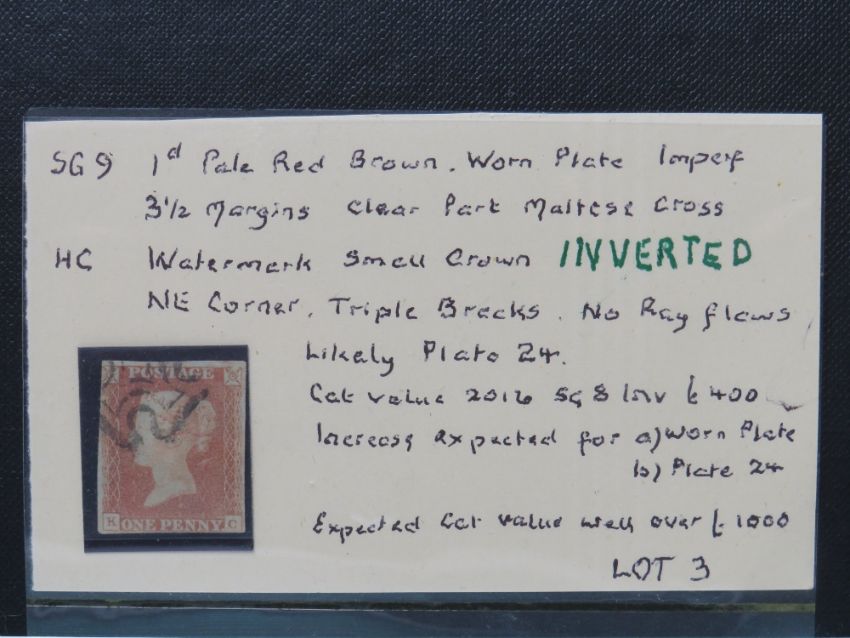 SG 9 1d Pale Red Brown. Worn Plate Imperf
3 1/2 Margins Clear Part Maltese Cross
HC Watermark Small Crown INVERTED
NE Corner. Triple Breaks. No Ray flaws
Likely Plate 24.
Cat value 2016 SG 8 Inv £400
Increase expected for a) Worn Plate
b) Plate 24
Expected Cat value well over £1000
LOT 3
POSTAGE
ONE PENNY
K C